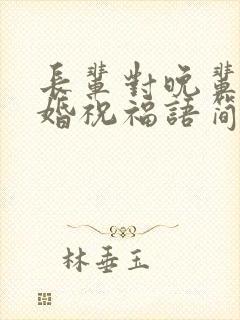 長輩對晚輩
婚祝福語简
林垂玉